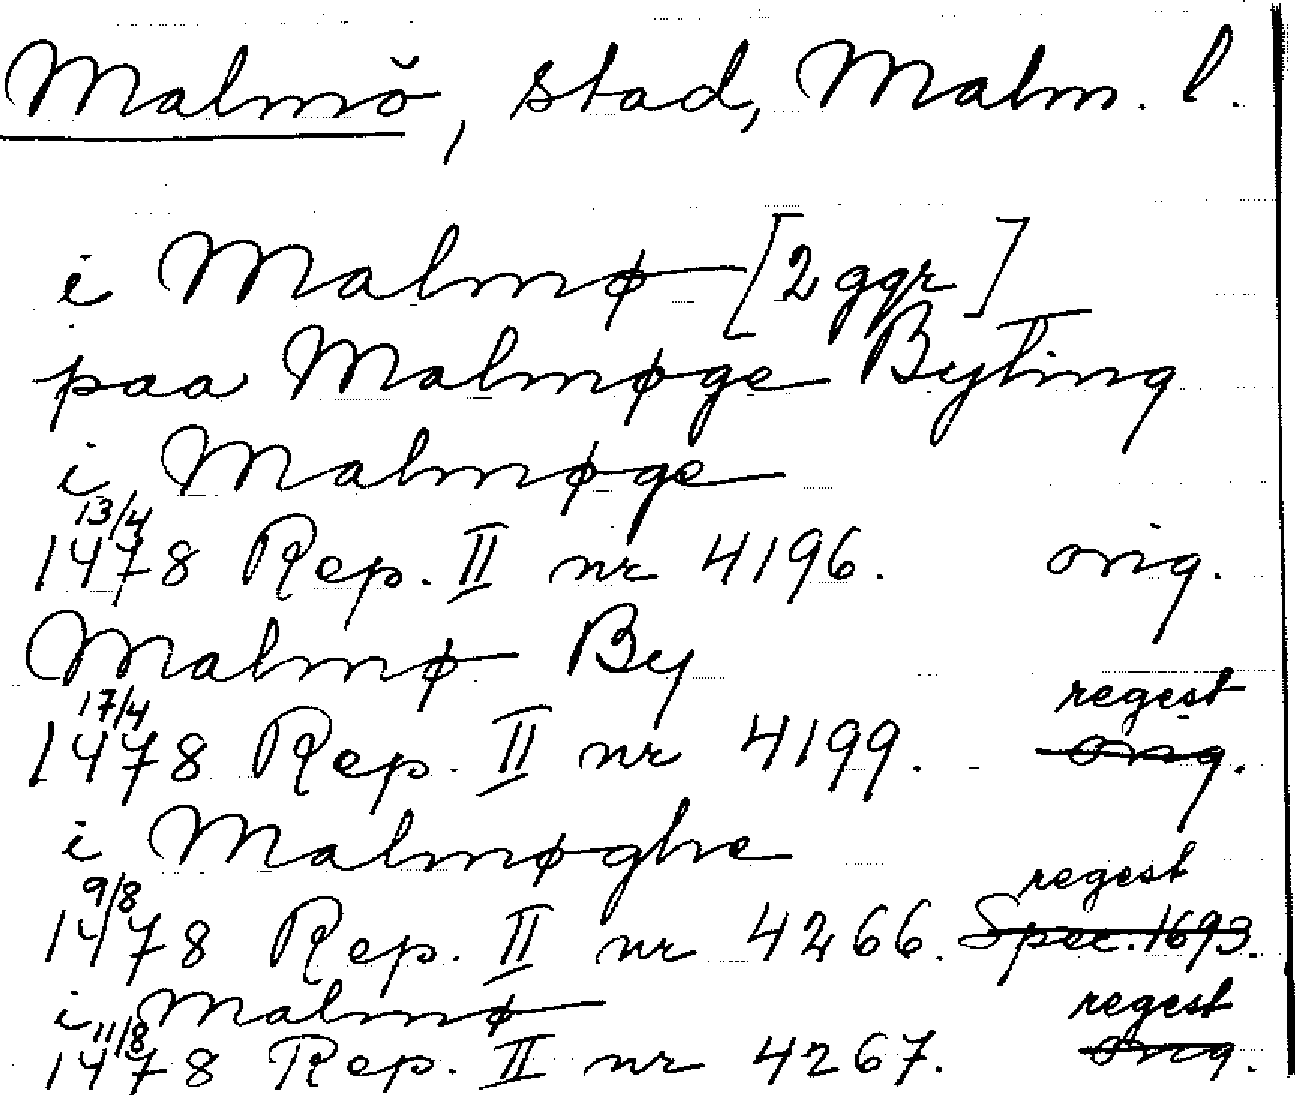 Malmö, stad, Malm. l.
i Malmø [2 ggr]
paa Malmøge Byting
i Malmøge
13/4
1478 Rep. II nr 4196. orig.
Malmø By
17/4 regest
1478 Rep. II nr 4199. orig.
i Malmøghe
9/8 regest
1478 Rep. II nr 4266. Spec. 1693.
i Malmø
11/8 regest
1478 Rep. II nr 4267. orig.